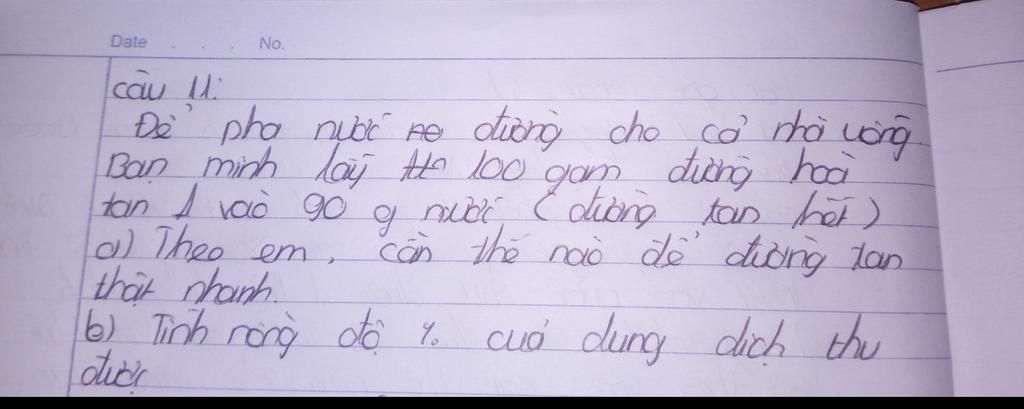 Date . . . No.
câu 11:
Để pha nước đường cho cả nhà uống
Bạn minh lấy 100 gam đường hoà
tan vào 90 g nước (đường tan hết)
a) Theo em, cần thế nào để đường tan
thật nhanh.
b) Tính nồng độ % của dung dịch thu
được